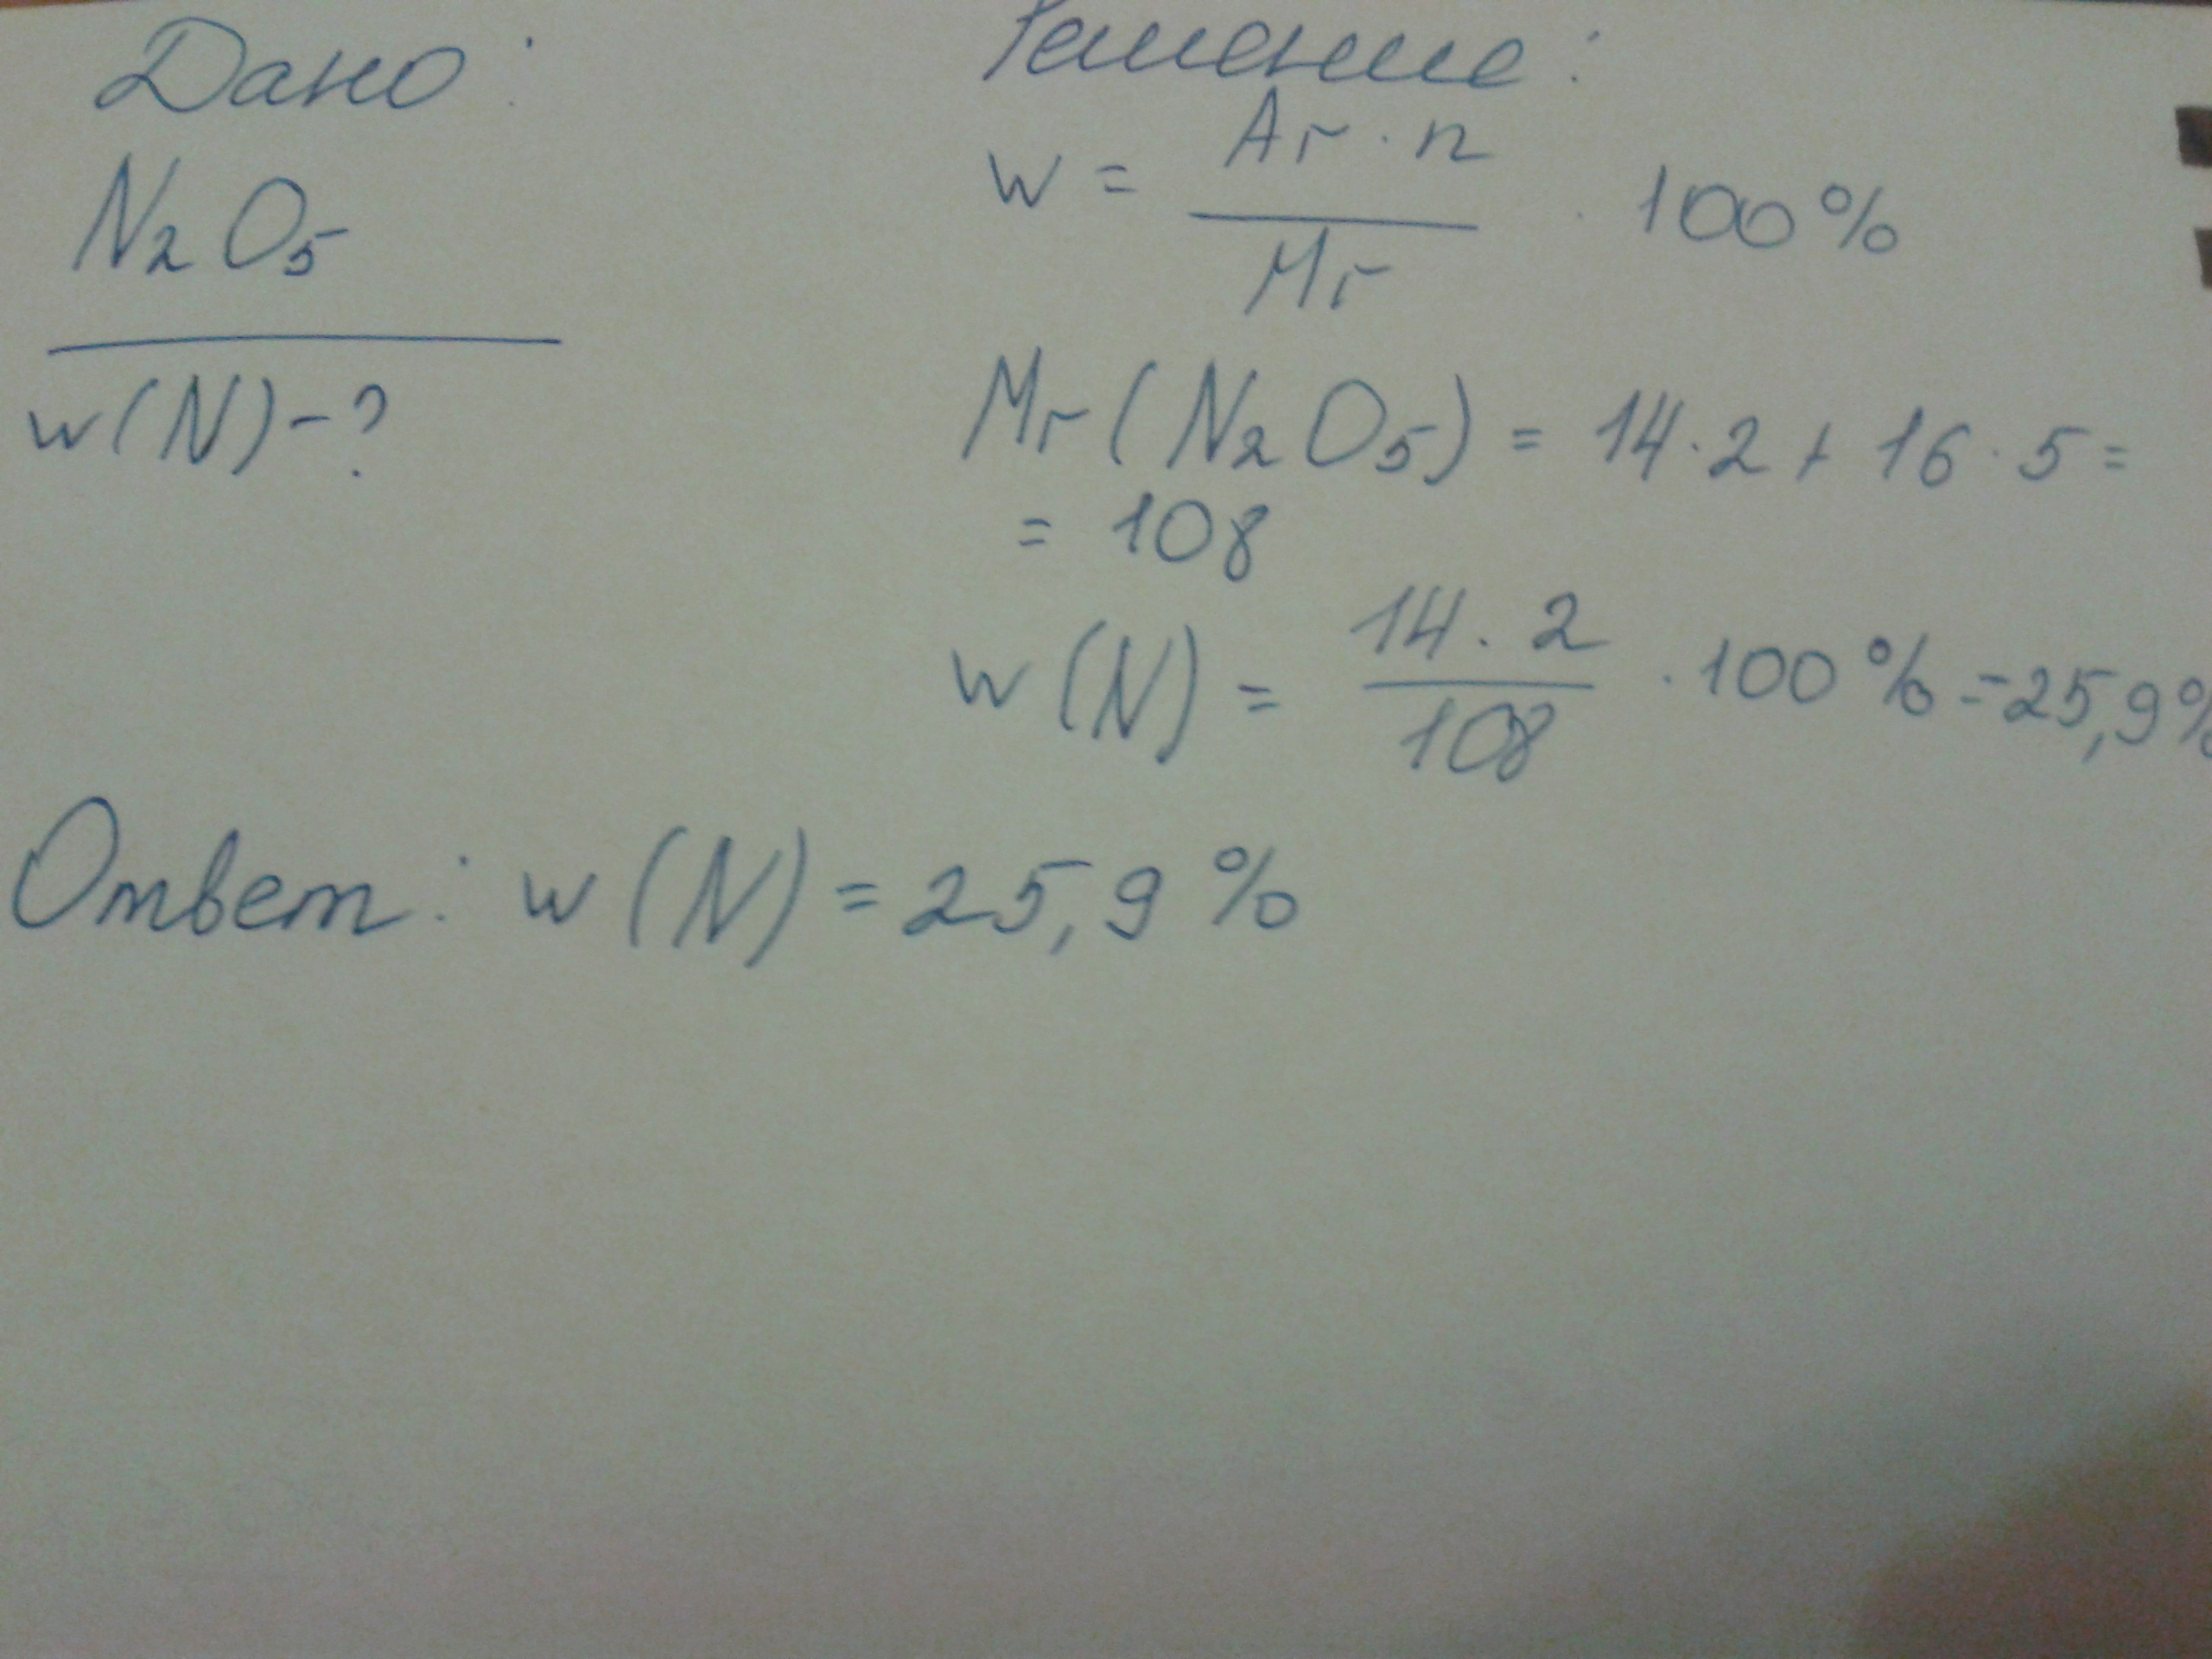 Дано:
N₂O₅
w(N)-?
Решение:
w = Ar · n / Mr · 100%
Mr(N₂O₅) = 14·2 + 16·5 =
= 108
w(N) = 14·2 / 108 · 100% = 25,9%
Ответ: w(N) = 25,9%